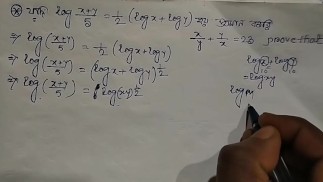 ⊛ যদি log (x+y)/5 = 1/2 (log x + log y) হয় প্রমাণ করো
x/y + y/x = 23 prove that
⇒ log (x+y)/5 = 1/2 (log x + log y)
⇒ log (x+y)/5 = (log x + log y) 1/2
⇒ log (x+y)/5 = log (xy) 1/2
= log xy
log M